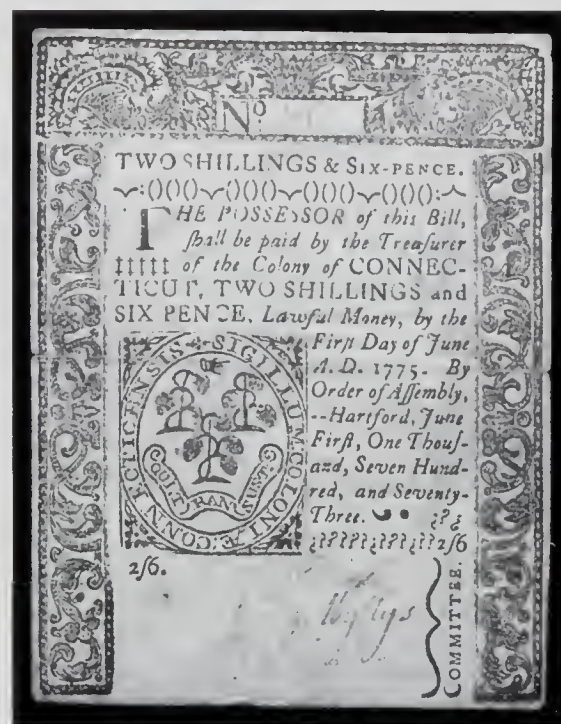 No
TWO SHILLINGS & SIX-PENCE.
THE POSSESSOR of this Bill,
ſhall be paid by the Treaſurer
‡‡‡‡‡ of the Colony of CONNEC-
TICUT, TWO SHILLINGS and
SIX PENCE, Lawful Money, by the
Firſt Day of June
A. D. 1775. By
Order of Aſſembly,
--Hartford, June
Firſt, One Thouſ-
and, Seven Hund-
red, and Seventy-
Three. ¿?¿
¿????¿??¿??2ſ6
SIGILLUM:COLONIÆ:CONNECTICENSIS
QUI TRANS SUST
2ſ6.
Wyllys
COMMITTEE.